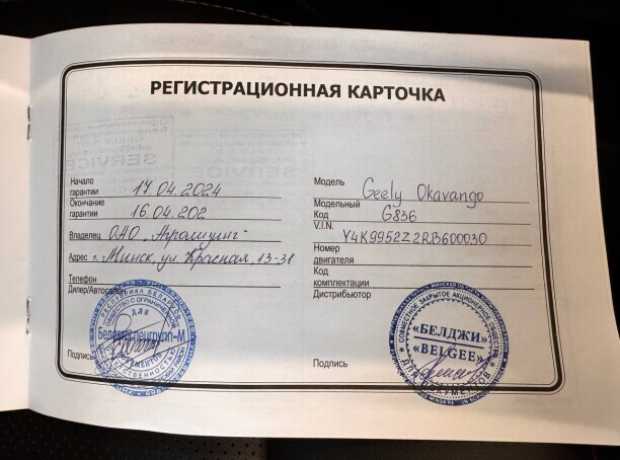 РЕГИСТРАЦИОННАЯ КАРТОЧКА
Начало
гарантии 17.04.2024
Окончание
гарантии 16.04.202
Владелец ОАО "Агролизинг"
Адрес г. Минск, ул Красная, 13-31
Телефон
Дилер/Авторо
ДЛЯ
ДОКУМЕНТОВ
Подпись
Модель Geely Okavango
Модельный
Код G836
V.I.N. Y4K9952Z2RB600030
Номер
двигателя
Код
комплектации
Дистрибьютор
СОВМЕСТНОЕ ЗАКРЫТОЕ АКЦИОНЕРНОЕ ОБЩЕСТВО
«БЕЛДЖИ»
«BELGEE»
ДЛЯ ДОКУМЕНТОВ
Подпись
SERVICE